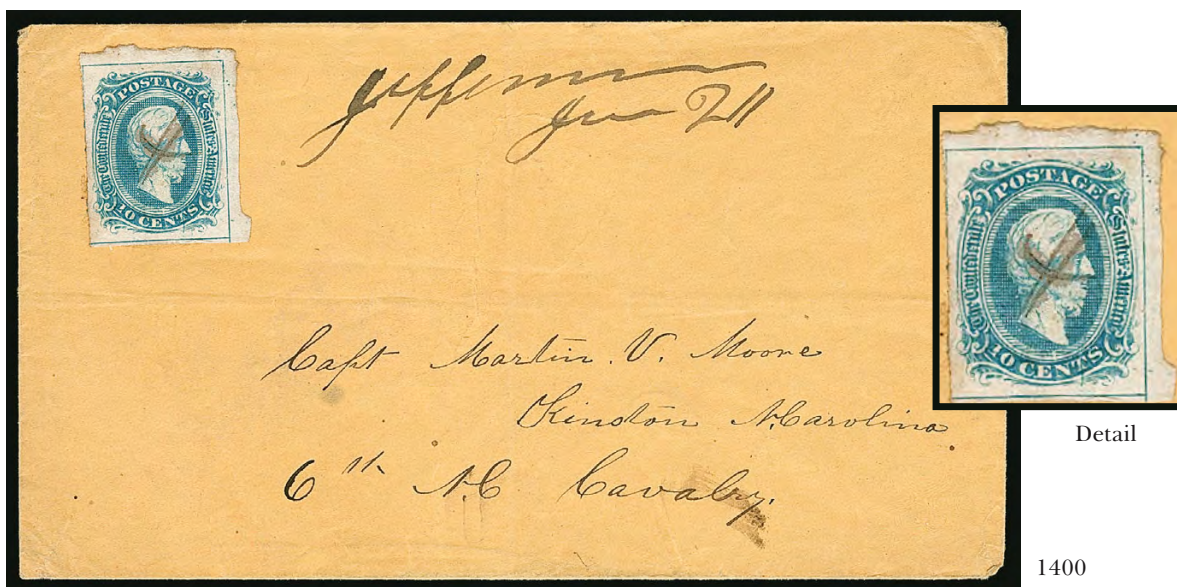 POSTAGE
The Confederate States America
10 CENTS
Jefferson
Capt Martin. V. Moore
Kinston N. Carolina
6th N.C Cavalry.
POSTAGE
The Confederate States America
10 CENTS
Detail
1400